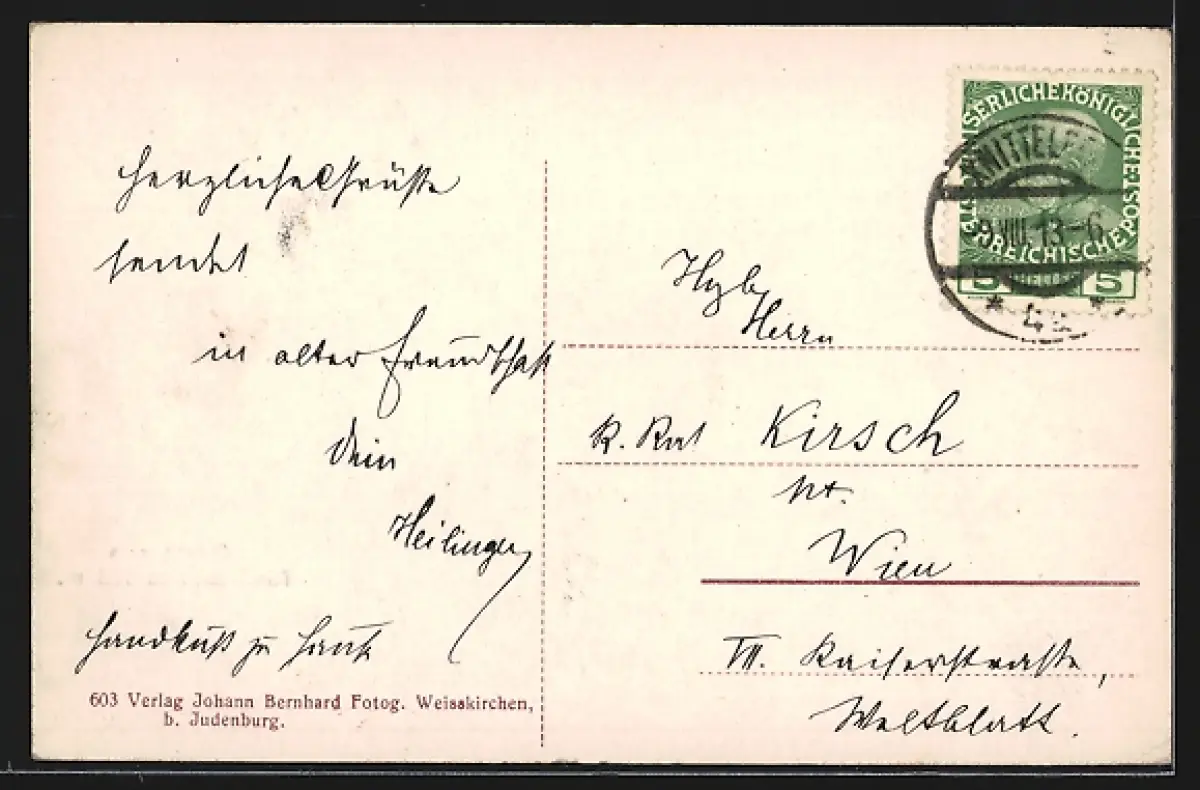 Herzliche Grüße
sendet
in alter Freundschaft
Dein
Heilinger
Handkuß zu Haus
603 Verlag Johann Bernhard Fotog. Weisskirchen,
b. Judenburg.
KAISERLICHEKÖNIGLICHE
ÖSTERREICHISCHEPOST
5 HELLER 5
KNITTELFELD
VIII. 13-6
* 4a *
Herrn
k. Rat Kirsch
Wien
VII. Kaiserstraße,
Weltblatt.